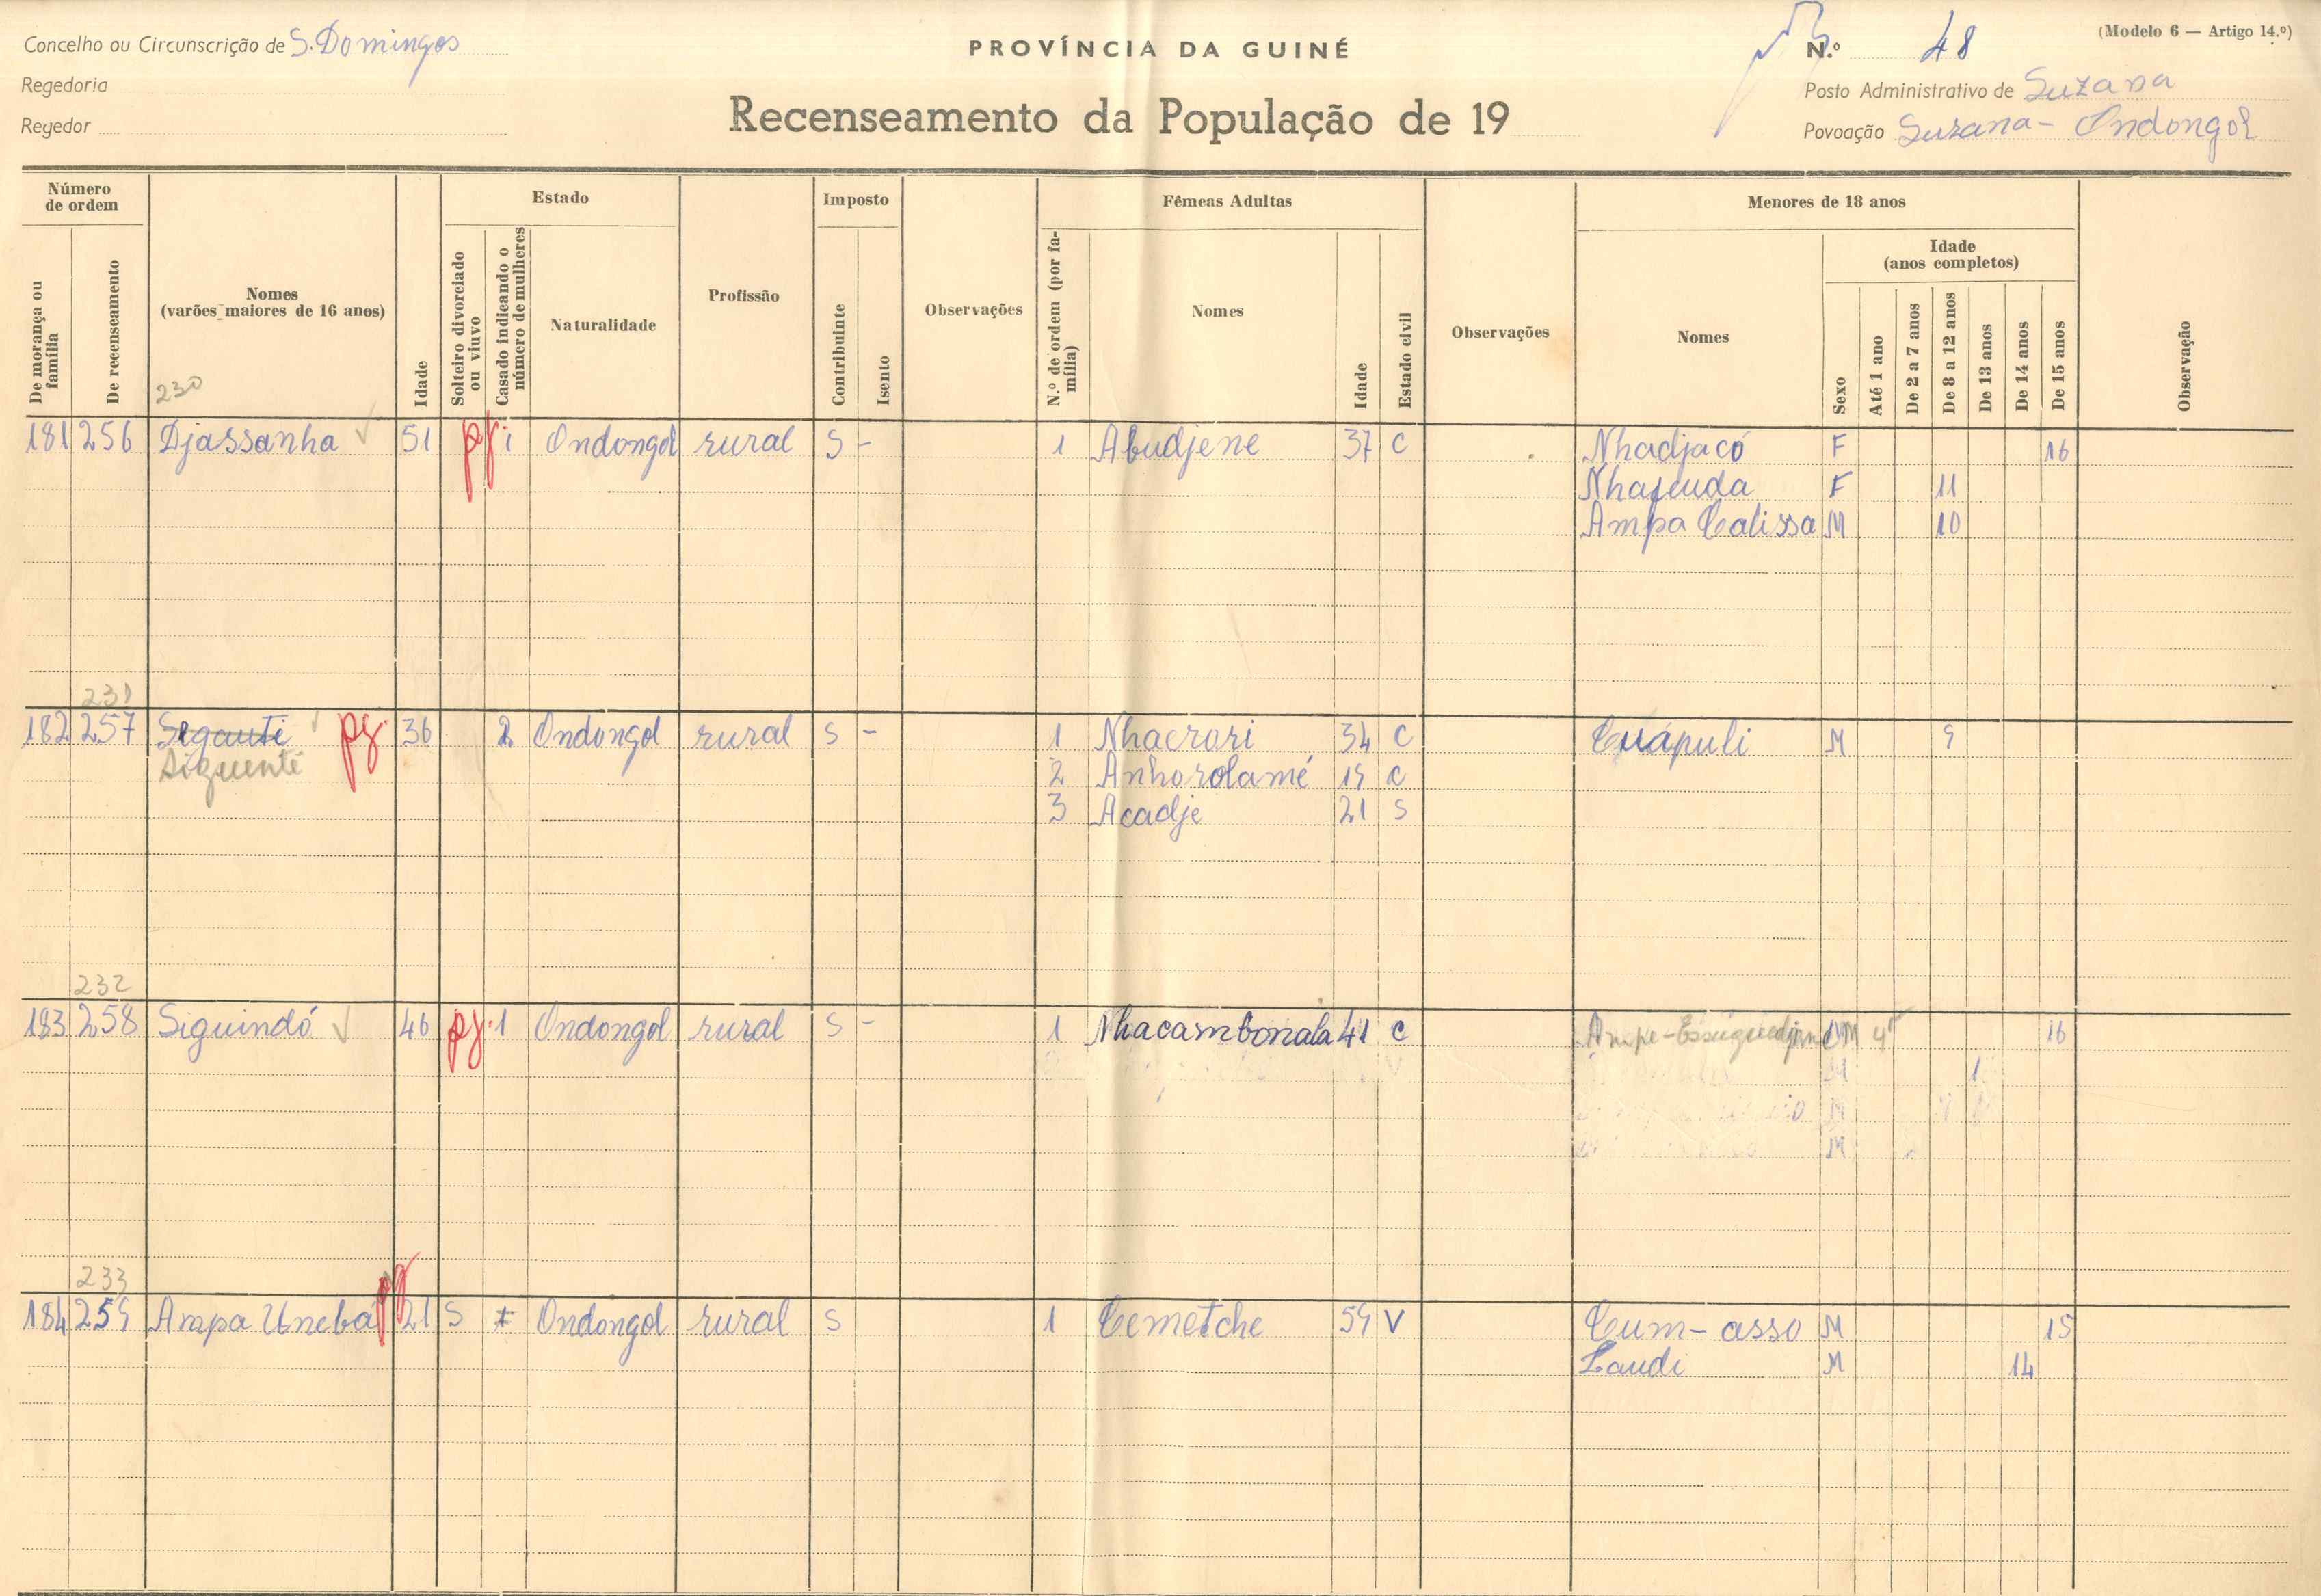 Concelho ou Circunscrição de S. Domingos
PROVÍNCIA DA GUINÉ
N.º 48
(Modelo 6 — Artigo 14.º)
Regedoria
Posto Administrativo de Suzana
Regedor
Recenseamento da População de 19
Povoação Suzana - Ondongol
Número de ordem
De morança ou família
De recenseamento
Nomes
(varões maiores de 16 anos)
230
Idade
Estado
Solteiro divorciado ou viuvo
Casado indicando o número de mulheres
Naturalidade
Profissão
Imposto
Contribuinte
Isento
Observações
Fêmeas Adultas
N.º de ordem (por família)
Nomes
Idade
Estado civil
Observações
Menores de 18 anos
Nomes
Sexo
Idade
(anos completos)
Até 1 ano
De 2 a 7 anos
De 8 a 12 anos
De 13 anos
De 14 anos
De 15 anos
Observação
181 256 Djassanha 51 pg. 1 Ondongol rural S - 1 Abudjene 37 C Nhadjacó F 16
F 11
Ampa Calissa M 10
231
182 257 Segauti pg. 36 2 Ondongol rural S - 1 Nhacrori 34 C Cuápuli M 9
Siguenté 2 Anhorolamé 19 C
3 Acadje 21 S
232
183 258 Siguindó 46 pg. 1 Ondongol rural S - 1 Nhacambonala 41 C M 16
M
M
M
233
184 259 Ampa Uneba pg 21 S Ondongol rural S 1 Cemetche 59 V Cum-asso M 15
Laudi M 14